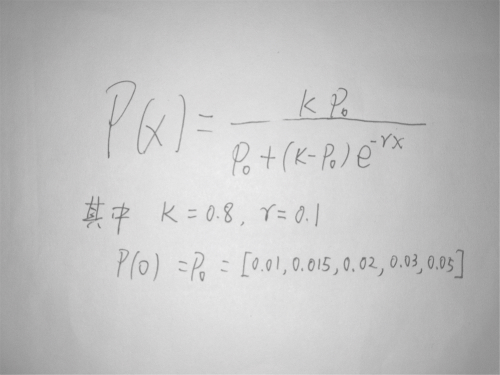 P(x) = \frac{K P_0}{P_0 + (K - P_0) e^{-rx}}
其中 K = 0.8, r = 0.1
P(0) = P_0 = [0.01, 0.015, 0.02, 0.03, 0.05]